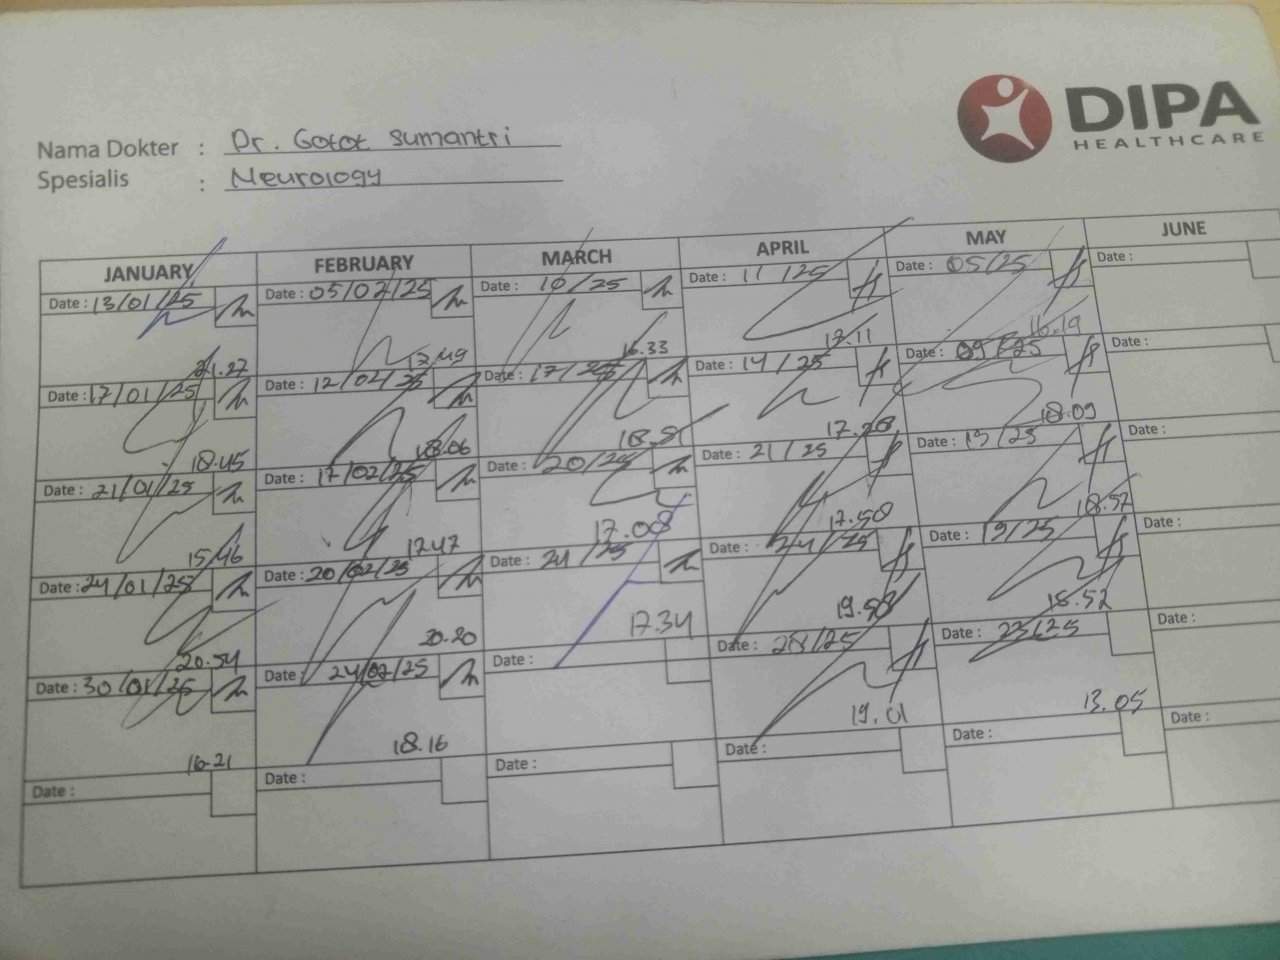 DIPA
HEALTHCARE
Nama Dokter : Dr. Gotot Sumantri
Spesialis : Neurology
JANUARY FEBRUARY MARCH APRIL MAY JUNE
Date : 13/01/25 Date : 05/02/25 Date : 10/25 Date : 11/25 Date : 05/25 Date :
21.27 17.49 16.33 17.11 16.19
Date : 17/01/25 Date : 12/02/25 Date : 17/25 Date : 14/25 Date : 09/25 Date :
18.45 18.06 18.51 17.28 18.09
Date : 21/01/25 Date : 17/02/25 Date : 20/25 Date : 21/25 Date : 19/25 Date :
15.46 17.47 17.08 17.58 18.52
Date : 24/01/25 Date : 20/02/25 Date : 24/25 Date : 24/25 Date : 19/25 Date :
20.54 20.20 17.34 19.58 18.52
Date : 30/01/25 Date : 24/02/25 Date : Date : 28/25 Date : 23/25 Date :
16.21 18.16 19.01 13.05
Date : Date : Date : Date : Date : Date :